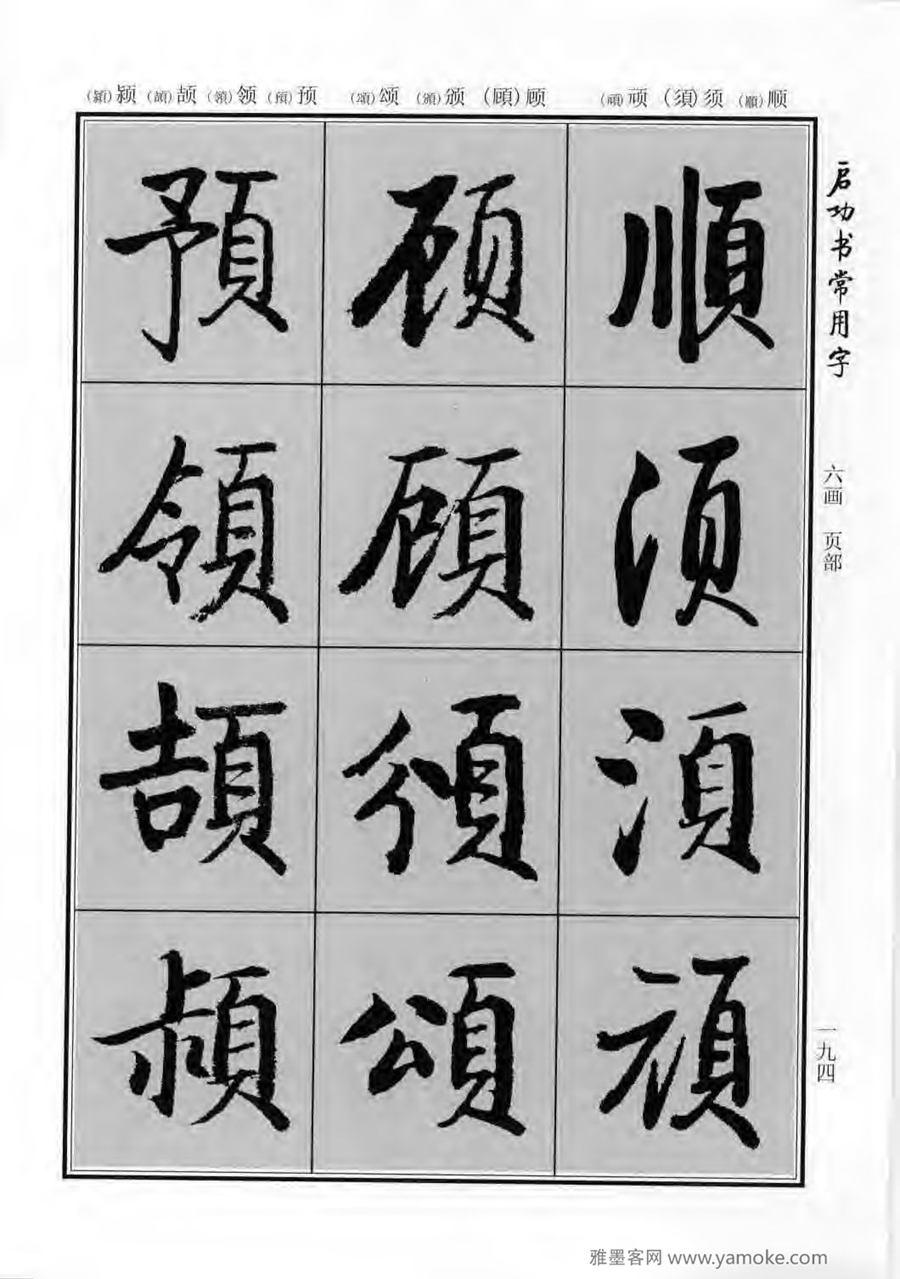 (穎)颍 (頡)颉 (領)领 (預)预 (頌)颂 (頒)颁 (顧)顾 (頑)顽 (須)须 (順)顺
启功书常用字
六画 页部
一九四
順
须
須
頑
顾
顧
頒
頌
預
領
頡
雅墨客网 www.yamoke.com